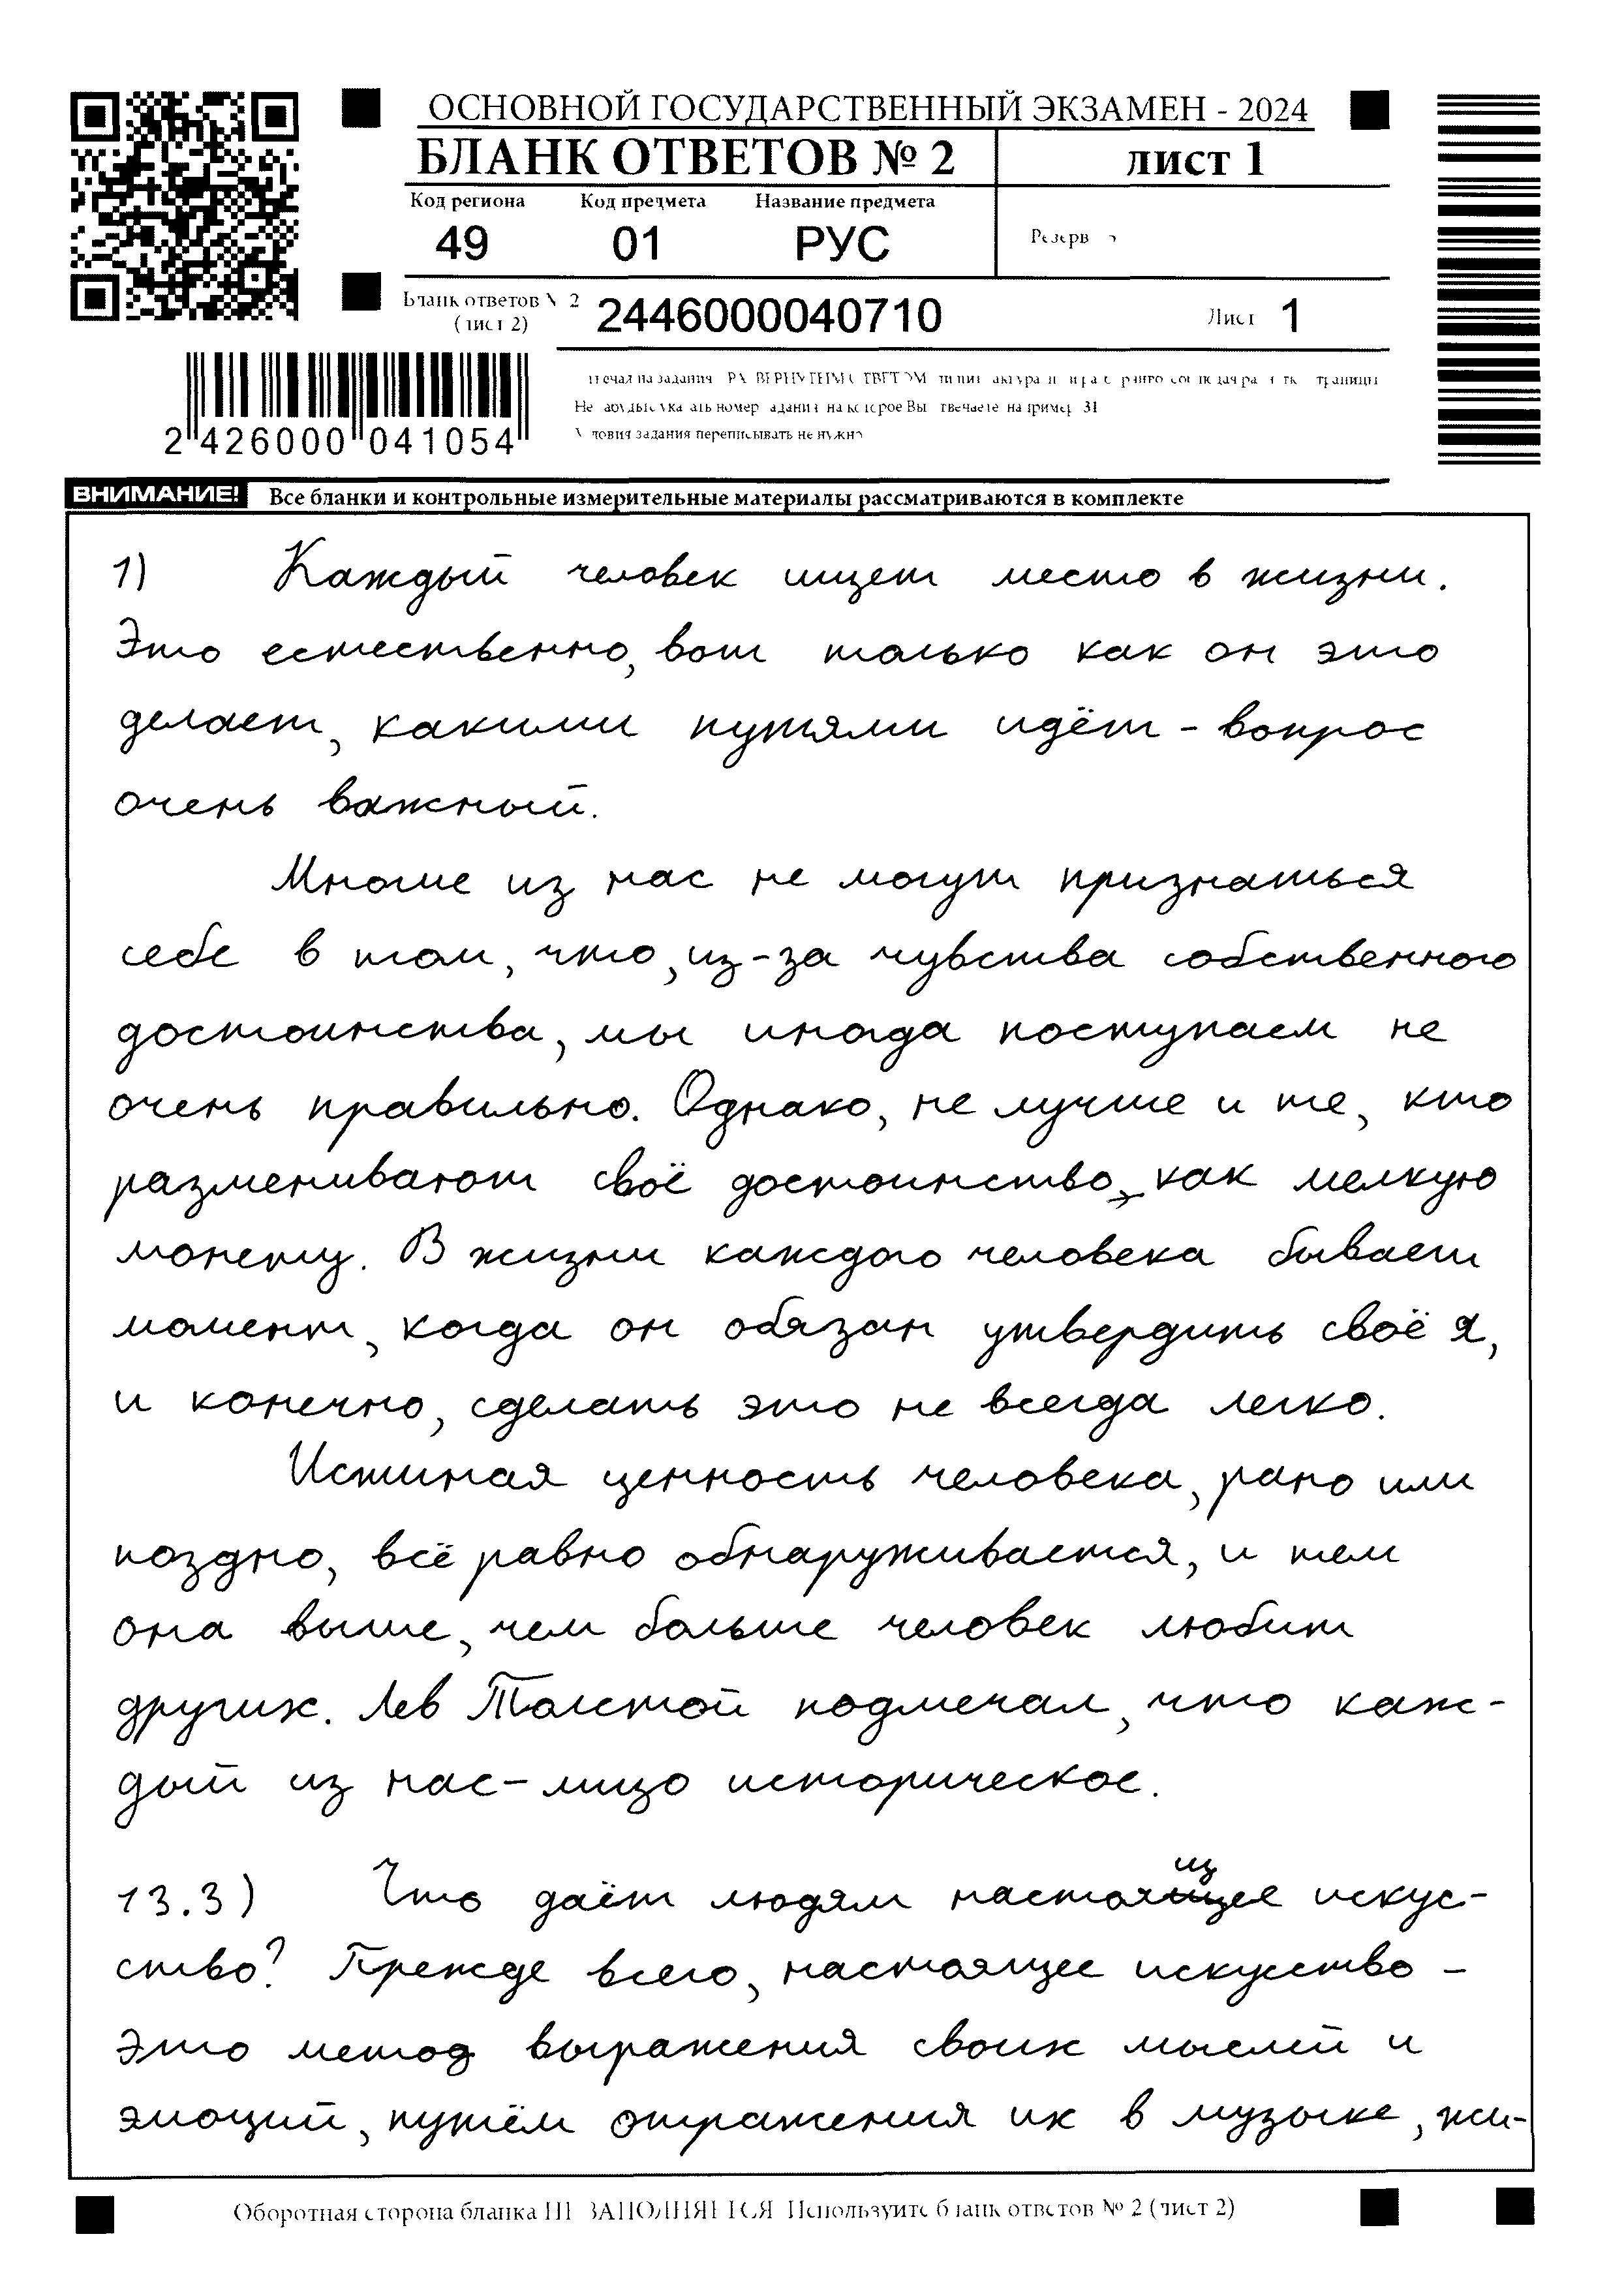 ОСНОВНОЙ ГОСУДАРСТВЕННЫЙ ЭКЗАМЕН - 2024
БЛАНК ОТВЕТОВ № 2
лист 1
Код региона Код предмета Название предмета
49 01 РУС
Резерв
Бланк ответов № 2
(лист 2)
2446000040710
Лист 1
2 426000 041054
Условия задания переписывать не нужно
ВНИМАНИЕ! Все бланки и контрольные измерительные материалы рассматриваются в комплекте
1) Каждый человек ищет место в жизни.
Это естественно, вот только как он это
делает, какими путями идёт - вопрос
очень важный.
Многие из нас не могут признаться
себе в том, что, из-за чувства собственного
достоинства, мы иногда поступаем не
очень правильно. Однако, не лучше и те, кто
разменивают своё достоинство, как мелкую
монету. В жизни каждого человека бывает
момент, когда он обязан утвердить своё я,
и конечно, сделать это не всегда легко.
Истиная ценность человека, рано или
поздно, всё равно обнаруживается, и тем
она выше, чем больше человек любит
других. Лев Толстой подмечал, что каж-
дый из нас - лицо историческое.
13.3) Что даёт людям настоящее искус-
ство? Прежде всего, настоящее искусство -
это метод выражения своих мыслей и
эмоций, путём отражения их в музыке, жи-
Оборотная сторона бланка НЕ ЗАПОЛНЯЕТСЯ. Используйте бланк ответов № 2 (лист 2)